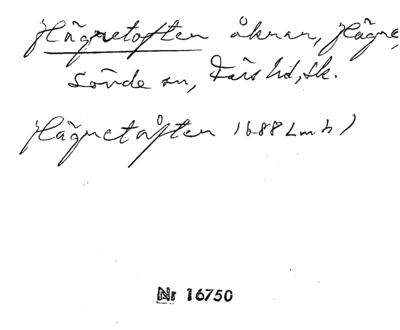 Hägnetoften åkrar, Hägne,
Sövde sn, Färs hd, Sk.
Hägnetåften 1688 Lmh)
Nr 16750